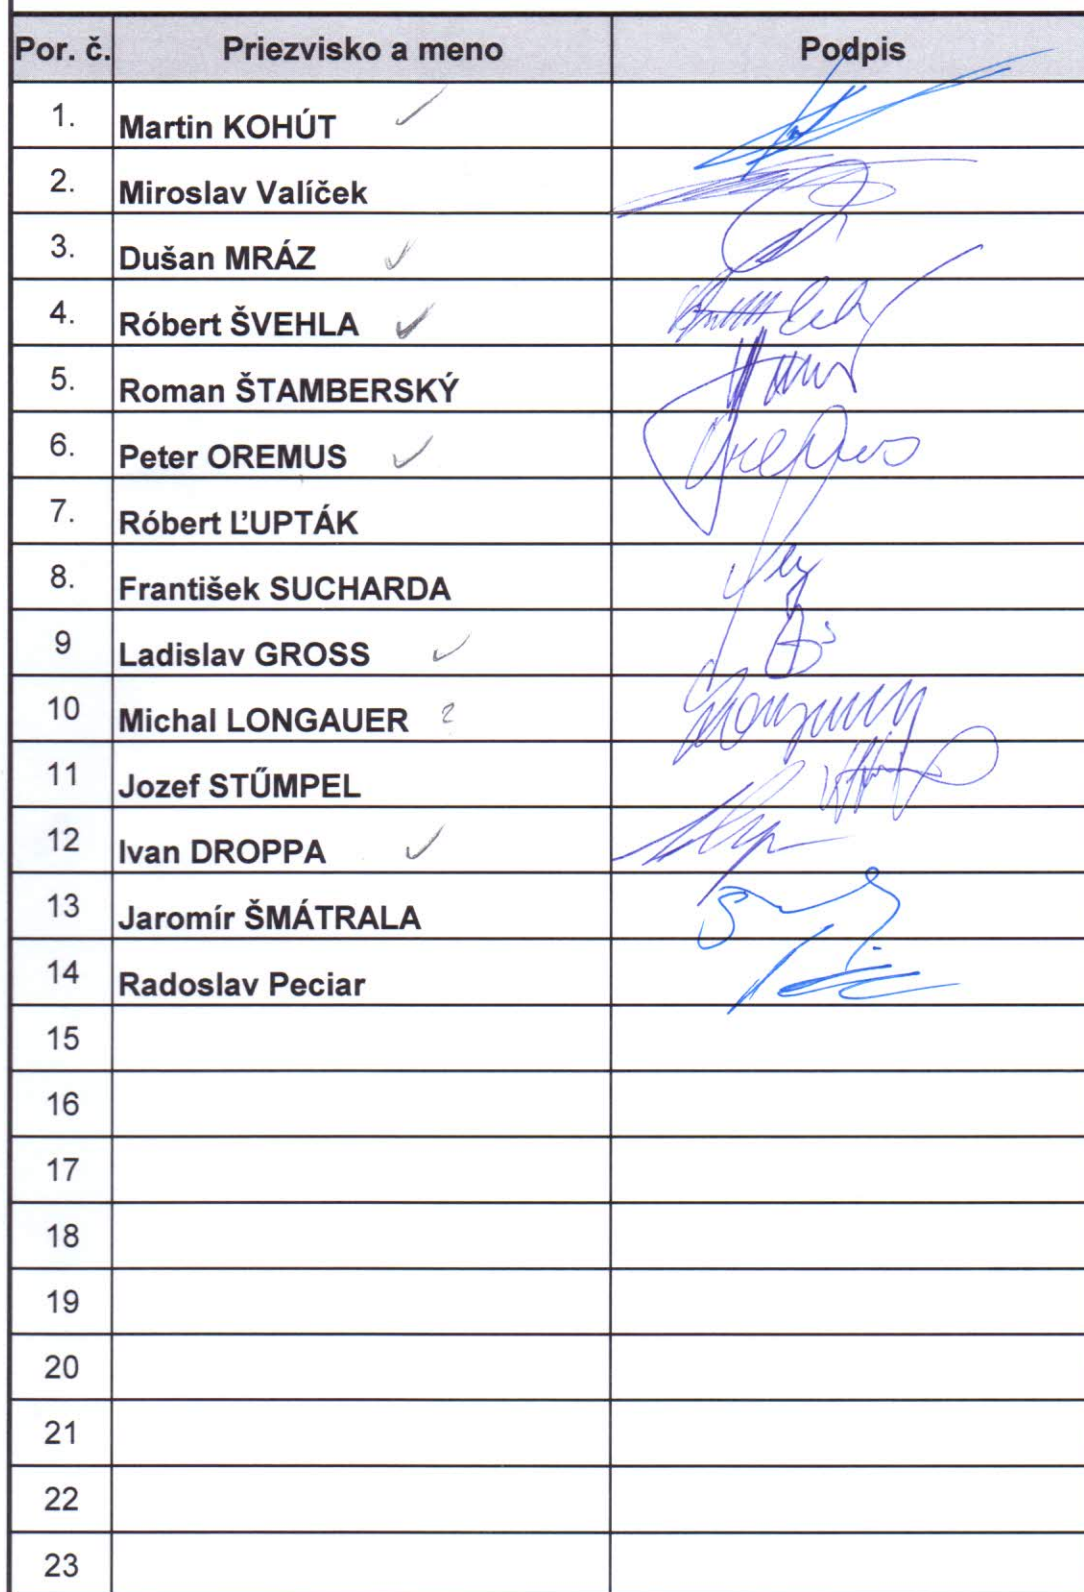 Por. č. Priezvisko a meno Podpis
1. Martin KOHÚT
2. Miroslav Valíček
3. Dušan MRÁZ
4. Róbert ŠVEHLA
5. Roman ŠTAMBERSKÝ
6. Peter OREMUS
7. Róbert ĽUPTÁK
8. František SUCHARDA
9 Ladislav GROSS
10 Michal LONGAUER ?
11 Jozef STŰMPEL
12 Ivan DROPPA
13 Jaromír ŠMÁTRALA
14 Radoslav Peciar
15
16
17
18
19
20
21
22
23